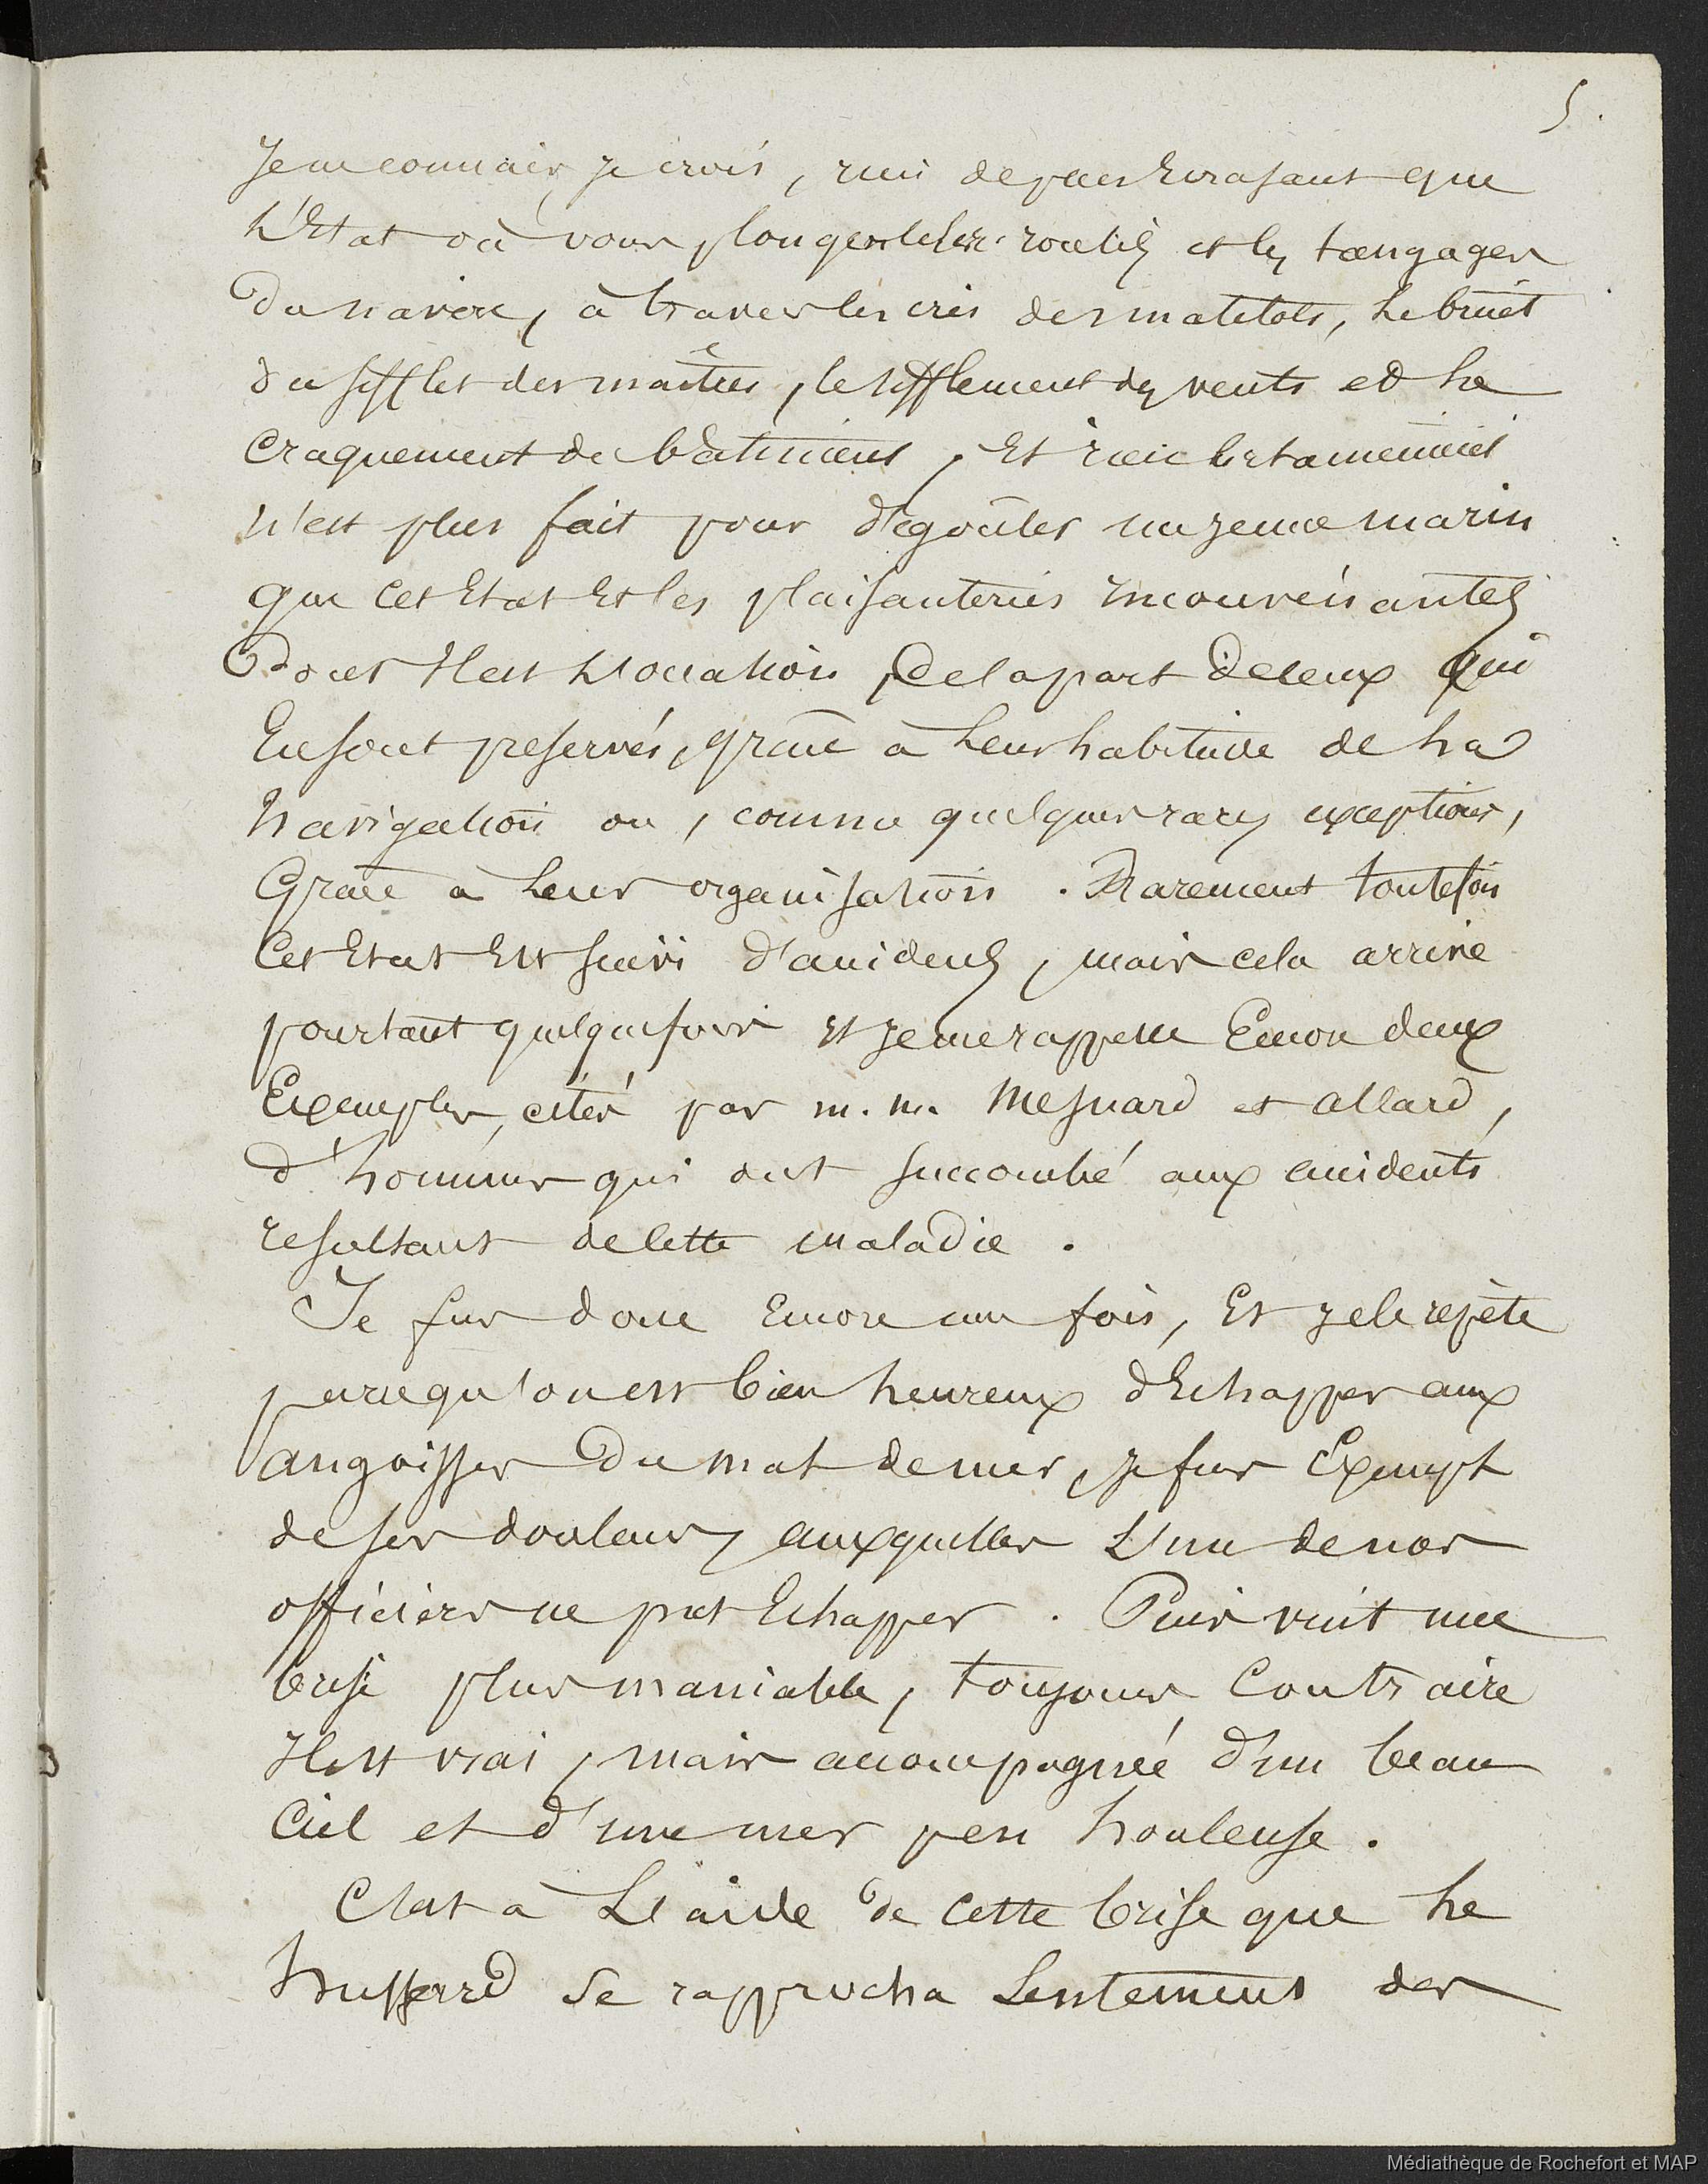 5.
Je ne connais, je crois, rien de plus Ecrasant que
L'Etat où vous plongent les roulis et les tangages
Du navire, à travers les cris des matelots, Le bruit
du sifflet des maîtres, le sifflement des vents et Le
Craquement du bâtiment, Et rien certainement
n'est plus fait pour dégoûter un jeune marin
que Cet Etat Et les plaisanteries inconvénantes
Dont Il est L'occasion, De la part de ceux qui
En sont preservés, grâce à Leur habitude de La
Navigation ou, comme quelques rares exceptions,
Grâce à Leur organisation. Rarement toutefois
Cet Etat Est suivi d'accidents, mais cela arrive
pourtant quelquefois Et je me rappelle Encore deux
Exemples, cités par m. m. Mesnard et allard,
d'hommes qui ont succombé aux accidents
resultant de Cette maladie.
Je fus donc Encore une fois, Et je le repète
parcequ'on est bien heureux d'Echapper aux
angoisses Du mal de mer, je fus Exempt
de ses douleurs auxquelles L'un de nos
officiers ne put Echapper. Puis vint une
brise plus maniable, toujours Contraire
Il est vrai, mais accompagnée d'un beau
Ciel et d'une mer peu houleuse.
C'est à L'aide de cette brise que Le
Hussard se rapprocha Lentement des
Médiathèque de Rochefort et MAP